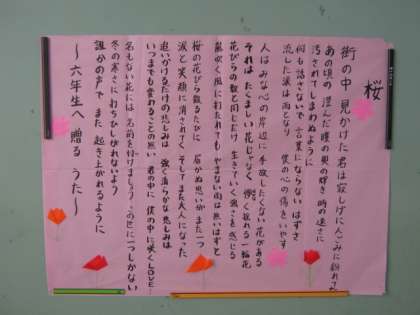 桜
街の中 見かけた君は寂しげに人ごみに紛れてた
あの頃の 澄んだ瞳の奥の輝き 時の速さに
汚されてしまわぬように
何も話さないで 言葉にならないはずさ
流した涙は雨となり 僕の心の傷をいやす
人はみな心の岸辺に 手放したくない花がある
それは たくましい花じゃなく 儚く揺れる一輪花
花びらの数と同じだけ 生きていく強さを感じる
嵐吹く風に打たれても やまない雨は無いはずと
桜の花びら散るたびに 届かぬ思いがまた一つ
涙と笑顔に消されてく そしてまた大人になった
追いかけるだけの悲しみは 強く清らかな悲しみは
いつまでも変わることの無い 君の中に 僕の中に咲くLOVE…
名もない花には 名前を付けましょう この世に一つしかない
冬の寒さに打ちひしがれないよう
誰かの声で また 起き上がれるように
〜六年生へ 贈る うた〜